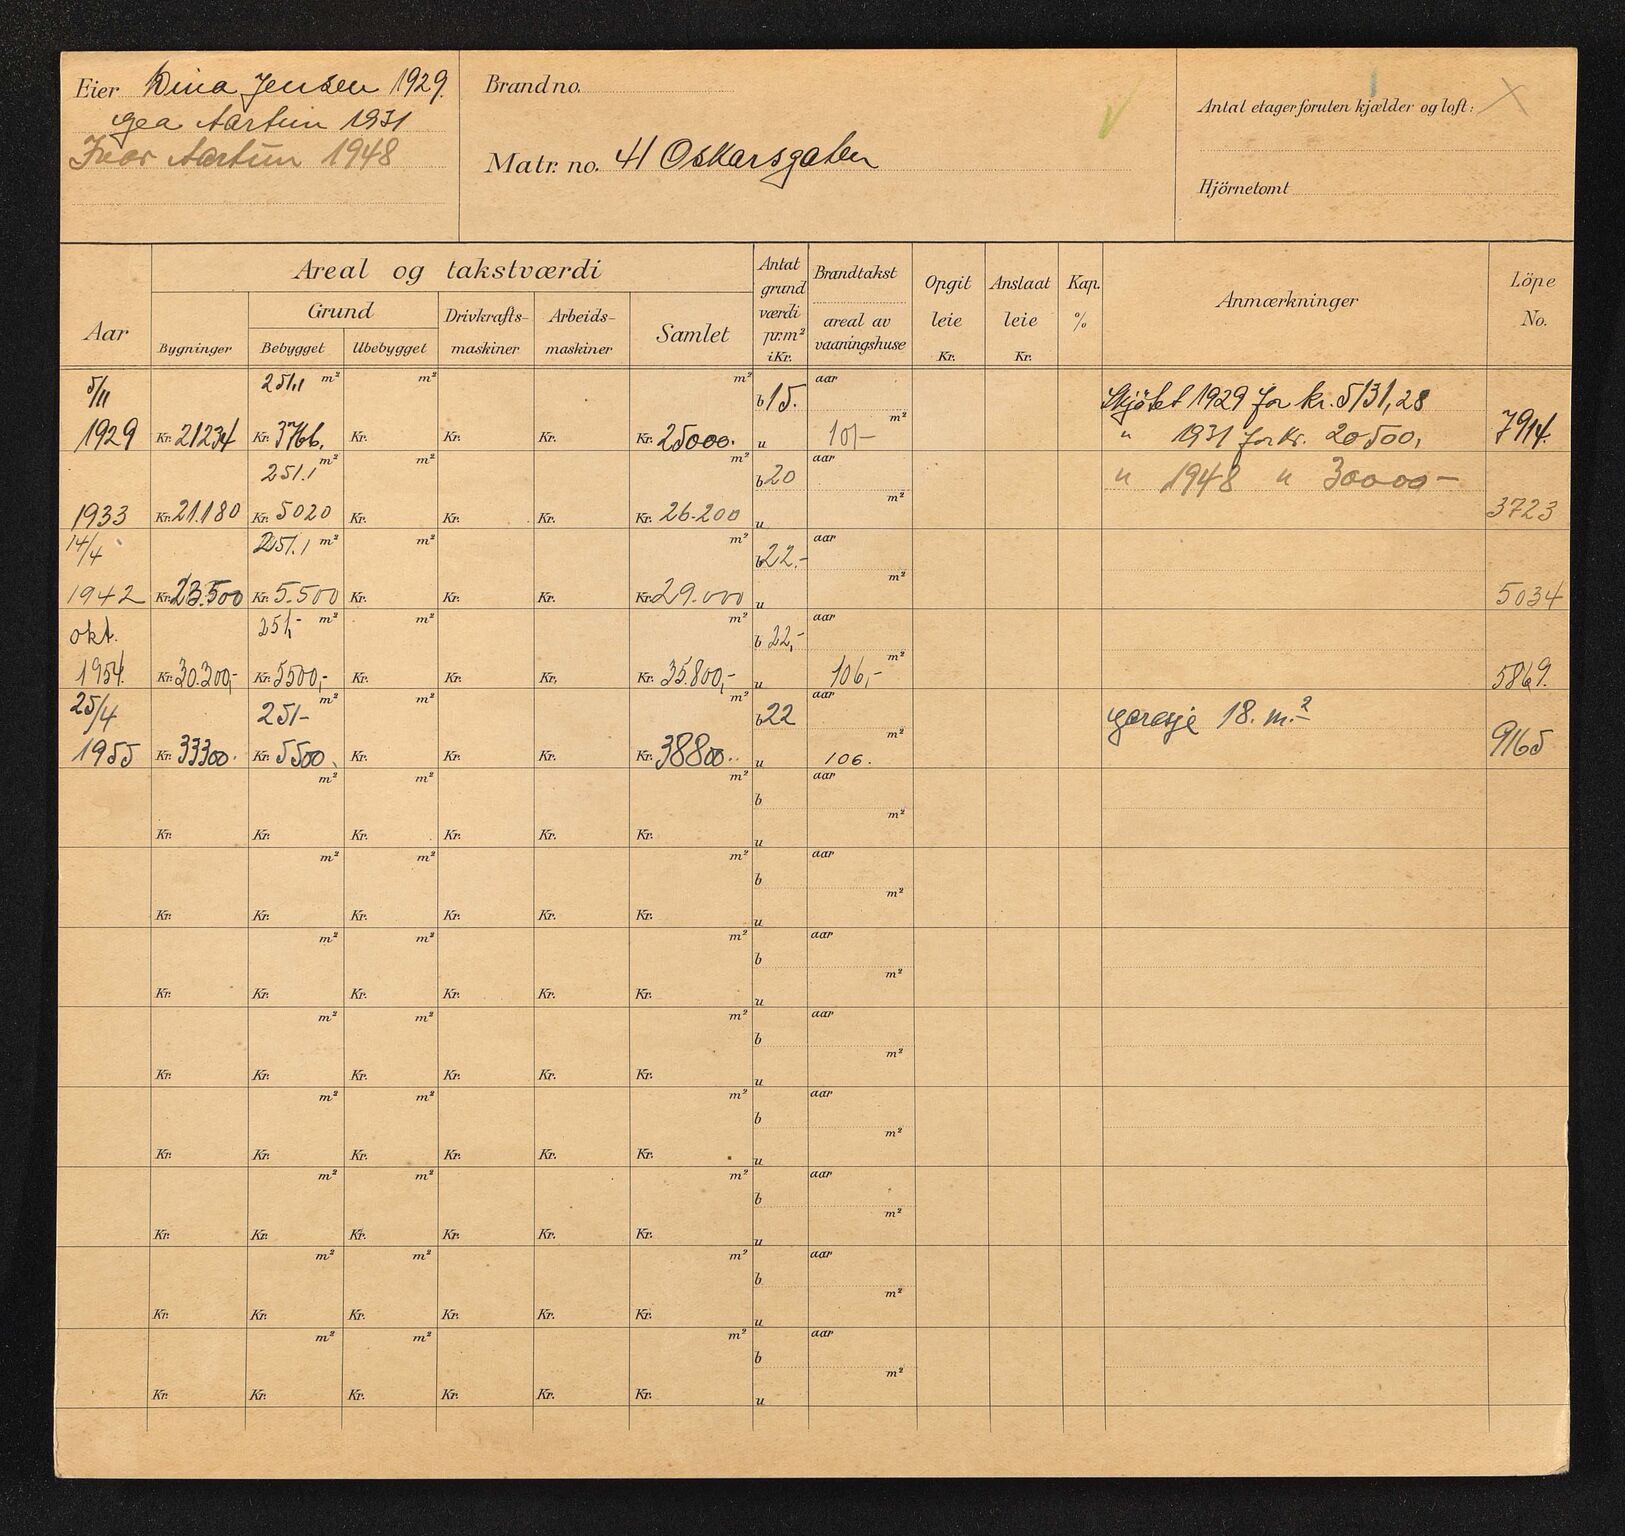 Eier Dina Jensen 1929.
Gea Aartun 1931
Ivar Aartun 1948
Brand no.
Matr. no. 41 Oskarsgaten
Antal etager foruten kjælder og loft: X
Hjörnetomt
Areal og takstværdi
Aar
Bygninger
Grund
Bebygget
Ubebygget
Drivkrafts-maskiner
Arbeids-maskiner
Samlet
Antat grund værdi pr. m² i Kr.
Brandtakst
areal av vaaningshuse
Opgit leie Kr.
Anslaat leie Kr.
Kap. %
Anmærkninger
Löpe No.
5/11 251,1 m² m² m² b 15. aar Skjötet 1929 for kr. 5131,28
1929 Kr. 21234 Kr. 3766, Kr. Kr. Kr. Kr. 25000. u 101- m² " 1931 for kr. 20500, 7914.
251.1 m² m² m² b 20 aar " 1948 " 30000-
1933 Kr. 21.180 Kr. 5020 Kr. Kr. Kr. Kr. 26.200 u m² 3723
14/4 251.1 m² m² m² b 22.- aar
1942 Kr. 23.500 Kr. 5.500 Kr. Kr. Kr. Kr. 29.000 u m² 5034
okt. 251,- m² m² m² b 22,- aar
1954. Kr. 30.300,- Kr. 5500,- Kr. Kr. Kr. Kr. 35.800,- u 106,- m² 5869.
25/4 251- m² m² m² b 22 aar garasje 18. m.²
1955 Kr. 33300. Kr. 5500. Kr. Kr. Kr. Kr. 38800.. u 106. m² 9165
m² m² m² b aar
Kr. Kr. Kr. Kr. Kr. Kr. u m²
m² m² m² b aar
Kr. Kr. Kr. Kr. Kr. Kr. u m²
m² m² m² b aar
Kr. Kr. Kr. Kr. Kr. Kr. u m²
m² m² m² b aar
Kr. Kr. Kr. Kr. Kr. Kr. u m²
m² m² m² b aar
Kr. Kr. Kr. Kr. Kr. Kr. u m²
m² m² m² b aar
Kr. Kr. Kr. Kr. Kr. Kr. u m²
m² m² m² b aar
Kr. Kr. Kr. Kr. Kr. Kr. u m²
m² m² m² b aar
Kr. Kr. Kr. Kr. Kr. Kr. u m²